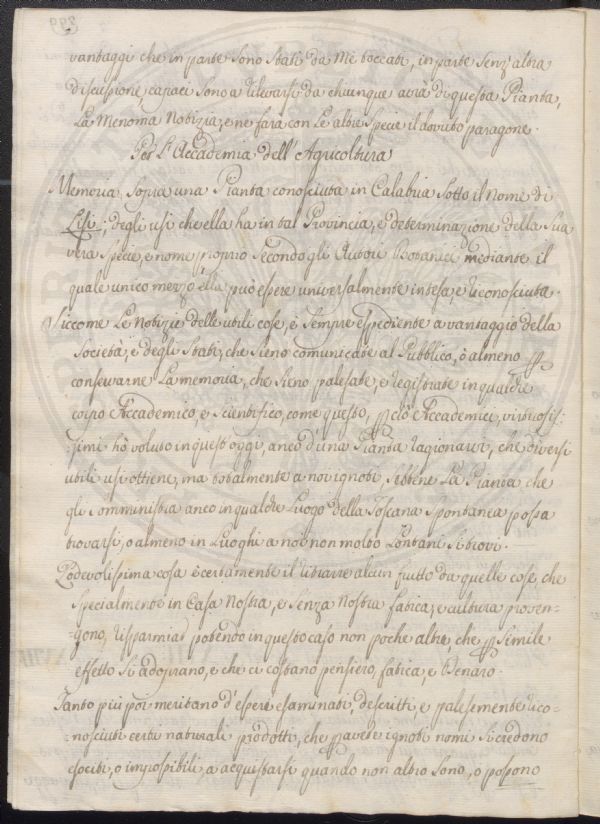 299
vantaggi che in parte sono stati da Me toccati, in parte senz'altra
discussione, capaci sono a rilevarsi da chiunque avrà di questa Pianta,
La Menoma Notizia, e ne farà con Le altre specie il dovuto paragone.
Per L'Accademia dell'Agricoltura
Memoria sopra una Pianta conosciuta in Calabria sotto il Nome di
Lisi; degli usi che ella ha in tal Provincia, e determinazione della sua
vera specie, e nome proprio secondo gli Autori Botanici mediante il
quale unico mezzo ella può essere universalmente intesa, e riconosciuta.
Siccome Le Notizie delle utili cose, è sempre espediente a vantaggio della
Società, e degli stati, che sieno comunicate al Pubblico, ò almeno p
conservarne La memoria, che sieno palesate, e registrate in qualche
corpo Accademico, e scientifico, come questo, p ciò Accademici, virtuosis=
=simi hò voluto in quest'oggi, anco d'una Pianta ragionarvi, che diversi
utili usi ottiene, ma totalmente a noi ignoti sebbene La Pianta che
gli somministra anco in qualche Luogo della Toscana spontanea possa
trovarsi, o almeno in Luoghi a noi non molto Lontani si trovi.
Lodevolissima cosa è certamente il ritrarre alcun frutto da quelle cose, che
specialmente in Casa Nostra, e senza Nostra fatica, e cultura proven=
=gono, risparmiar potendo in questo caso non poche altre, che p simile
effetto si adoprano, e che ci costano pensiero, fatica, e Denaro.
Tanto più poi meritano d'essere esaminati, descritti, e palesemente rico=
=nosciuti certi naturali prodotti, che p avere ignoti nomi si credono
esotici, o impossibili, a acquistarsi quando non altro sono, o possono